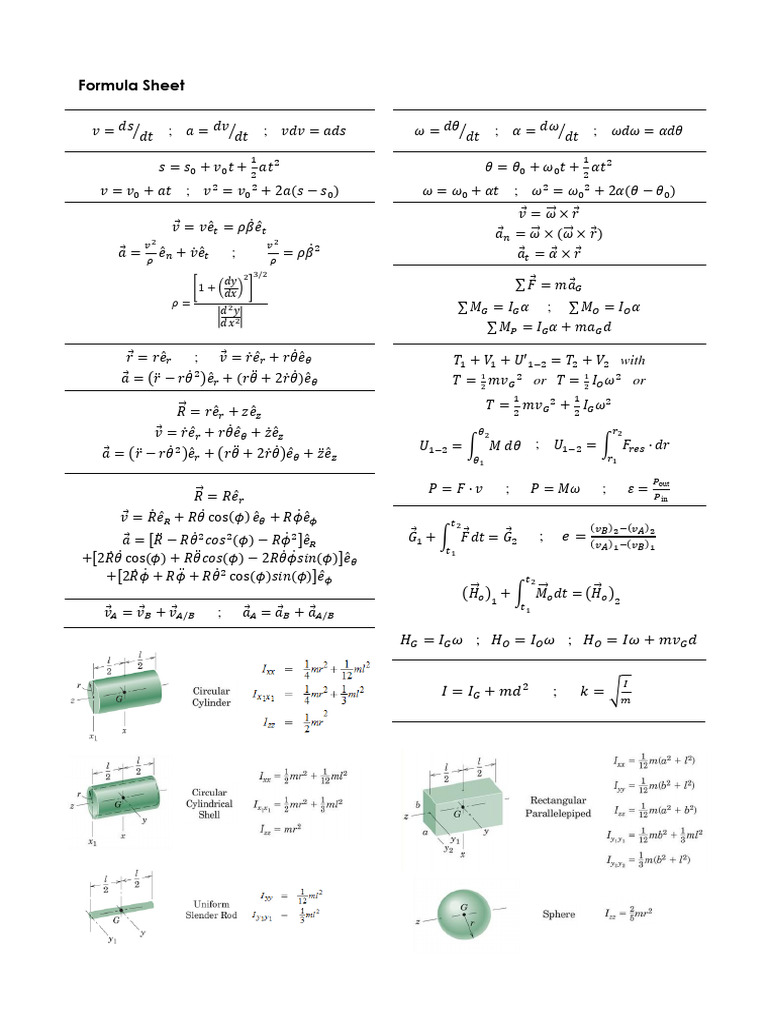 Formula Sheet
v = ds/dt ; a = dv/dt ; vdv = ads
s = s₀ + v₀t + ½at²
v = v₀ + at ; v² = v₀² + 2a(s − s₀)
v⃗ = vê_t = ρβ̇ê_t
a⃗ = v²/ρ ê_n + v̇ê_t ; v²/ρ = ρβ̇²
ρ = [1 + (dy/dx)²]^(3/2) / |d²y/dx²|
r⃗ = rê_r ; v⃗ = ṙê_r + rθ̇ê_θ
a⃗ = (r̈ − rθ̇²)ê_r + (rθ̈ + 2ṙθ̇)ê_θ
R⃗ = rê_r + zê_z
v⃗ = ṙê_r + rθ̇ê_θ + żê_z
a⃗ = (r̈ − rθ̇²)ê_r + (rθ̈ + 2ṙθ̇)ê_θ + z̈ê_z
R⃗ = Rê_r
v⃗ = Ṙê_R + Rθ̇ cos(ϕ) ê_θ + Rϕ̇ê_ϕ
a⃗ = [R̈ − Rθ̇²cos²(ϕ) − Rϕ̇²]ê_R
+[2Ṙθ̇ cos(ϕ) + Rθ̈cos(ϕ) − 2Rθ̇ϕ̇sin(ϕ)]ê_θ
+[2Ṙϕ̇ + Rϕ̈ + Rθ̇² cos(ϕ)sin(ϕ)]ê_ϕ
v⃗_A = v⃗_B + v⃗_A/B ; a⃗_A = a⃗_B + a⃗_A/B
ω = dθ/dt ; α = dω/dt ; ωdω = αdθ
θ = θ₀ + ω₀t + ½αt²
ω = ω₀ + αt ; ω² = ω₀² + 2α(θ − θ₀)
v⃗ = ω⃗ × r⃗
a⃗_n = ω⃗ × (ω⃗ × r⃗)
a⃗_t = α⃗ × r⃗
∑F⃗ = ma⃗_G
∑M_G = I_Gα ; ∑M_O = I_Oα
∑M_P = I_Gα + ma_Gd
T₁ + V₁ + U′₁₋₂ = T₂ + V₂ with
T = ½mv_G² or T = ½I_Oω² or
T = ½mv_G² + ½I_Gω²
U₁₋₂ = ∫_θ₁^θ₂ M dθ ; U₁₋₂ = ∫_r₁^r₂ F_res · dr
P = F · v ; P = Mω ; ε = P_out/P_in
G⃗₁ + ∫_t₁^t₂ F⃗dt = G⃗₂ ; e = (v_B)₂−(v_A)₂ / (v_A)₁−(v_B)₁
(H⃗_o)₁ + ∫_t₁^t₂ M⃗_o dt = (H⃗_o)₂
H_G = I_Gω ; H_O = I_Oω ; H_O = Iω + mv_Gd
I = I_G + md² ; k = √(I/m)
l/2 l/2
r
z G
x₁ x
Circular
Cylinder
I_xx = 1/4 mr² + 1/12 ml²
I_x₁x₁ = 1/4 mr² + 1/3 ml²
I_zz = 1/2 mr²
l/2 l/2
r
z G
x₁ x y
Circular
Cylindrical
Shell
I_xx = 1/2 mr² + 1/12 ml²
I_x₁x₁ = 1/2 mr² + 1/3 ml²
I_zz = mr²
l/2 l/2
G
y₁ y
Uniform
Slender Rod
I_yy = 1/12 ml²
I_y₁y₁ = 1/3 ml²
l/2 l/2
b
z G
a y₁ y
y₂ x
Rectangular
Parallelepiped
I_xx = 1/12 m(a² + l²)
I_yy = 1/12 m(b² + l²)
I_zz = 1/12 m(a² + b²)
I_y₁y₁ = 1/12 mb² + 1/3 ml²
I_y₂y₂ = 1/3 m(b² + l²)
G
z r
Sphere
I_zz = 2/5 mr²